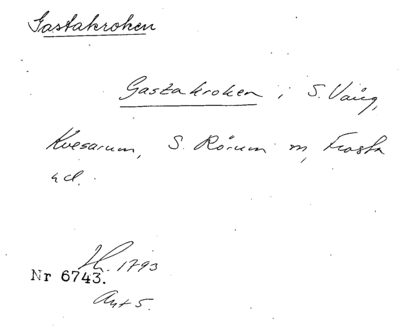 Gastakroken
Gastakroken i S. Vång,
Kvesarum, S. Rörum sn, Frosta
hd.
H. 1793
Nr 6743.
Ant 5.